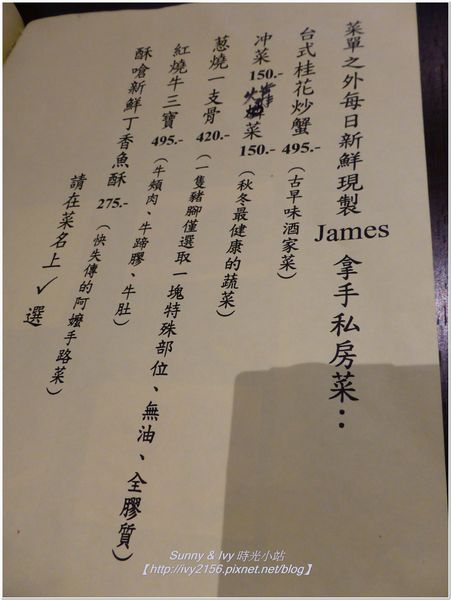 菜單之外每日新鮮現製 James 拿手私房菜：
台式桂花炒蟹 495.- （古早味酒家菜）
冲菜 150.- 菜 150.- （秋冬最健康的蔬菜）
蔥燒一支骨 420.- （一隻豬腳僅選取一塊特殊部位、無油、全膠質）
紅燒牛三寶 495.- （牛頰肉、牛蹄膠、牛肚）
酥嗆新鮮丁香魚酥 275.- （快失傳的阿嬤手路菜）
請在菜名上✓選
Sunny & Ivy 時光小站
【http://ivy2156.pixnet.net/blog】